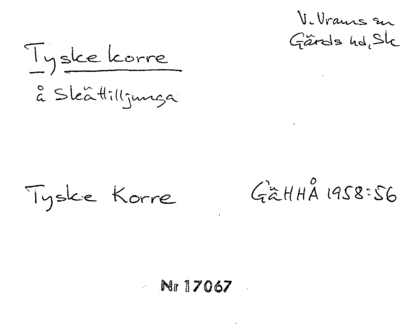 V. Vrams sn
Tyske korre
Gärds hd, Sk
å Skättilljunga
Tyske Korre
GäHHÅ 1958:56
Nr 17067